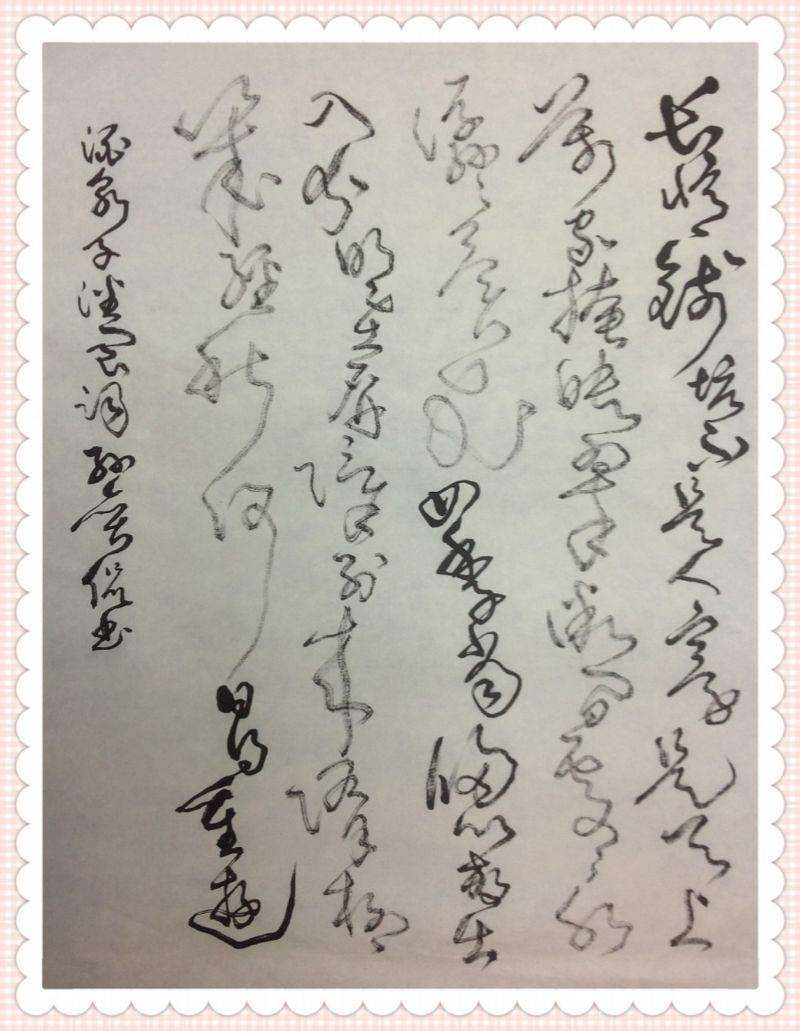 长忆钱塘不是人寰是天上
万家掩映翠微间处处水
潺潺异花四季当窗放出
入分明在屏障别来隋柳
几经秋何日得重游
酒泉子潘阆词孙侃书